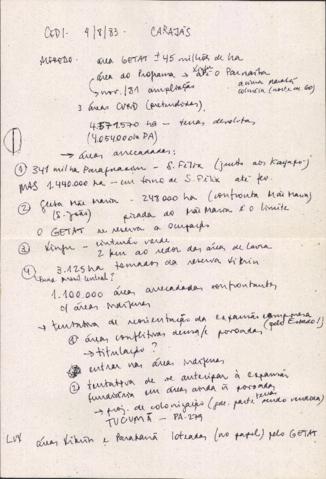 CEDI - 9/8/83 - CARAJÁS
MÉTODO - área GETAT ± 45 milhões de ha
área do Programa Xingu até o Parnaíba
nov./81 ampliação
3 áreas CVRD (pretendidas)
4.571.570 ha - terras devolutas
(4.054.000 ha PA)
→ áreas arrecadadas:
① 341 milha Parapanacum - S. Félix (junto aos Kayapó)
MAS 1.440.000 ha - em torno de S. Félix até fev.
② gleba Mãe Maria - 248.000 ha (confronta Mãe Maria)
(S. João) picada do Mãe Maria é o limite
O GETAT se reserva a ocupação
③ Xingu - cinturão verde
2 km ao redor das áreas de lavra
④ 3.125 ha tomados da reserva Xikrin
1.100.000 áreas arrecadadas confrontantes
c/ áreas indígenas
→ tentativa de reorientação da expansão camponesa
① áreas conflitivas densa/e povoadas (pelo Estado!)
→ titulação?
entrar nas áreas indígenas
② tentativa de se antecipar à expansão
fundiária em áreas ainda ñ povoadas
→ proj. de colonização (pae. parte terra sendo vendida)
TUCUMÃ - PA-279
LUX áreas Xikrin e Parakanã loteadas (no papel) pelo GETAT